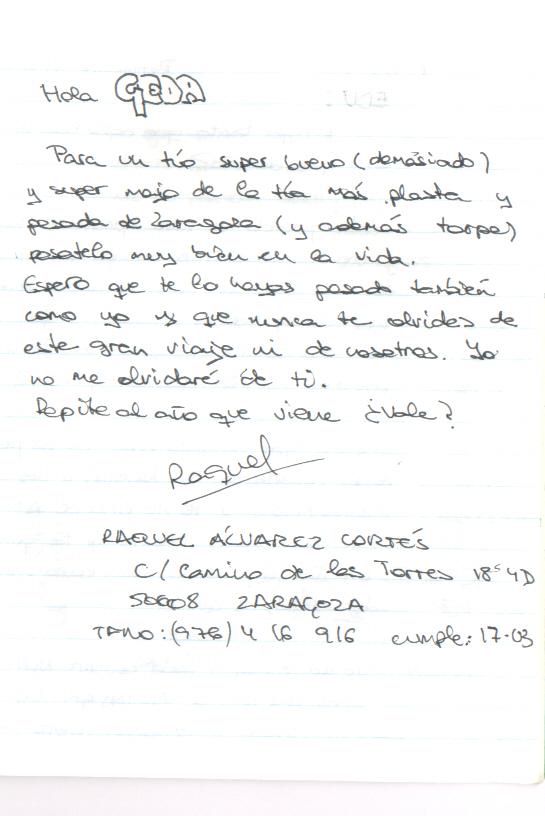 Hola GEDA
Para un tío super bueno (demásiado)
y super majo de la tía más plasta y
pesada de Zaragoza (y además torpe)
pasatelo muy bien en la vida.
Espero que te lo hayas pasado también
como yo y que nunca te olvides de
este gran viaje ni de nosotros. Yo
no me olvidaré de ti.
Repite al año que viene ¿vale?
Raquel
RAQUEL ÁLVAREZ CORTÉS
C/ Camino de las Torres 18 4D
50008 ZARAGOZA
TFNO: (976) 4 16 916 cumple: 17-03